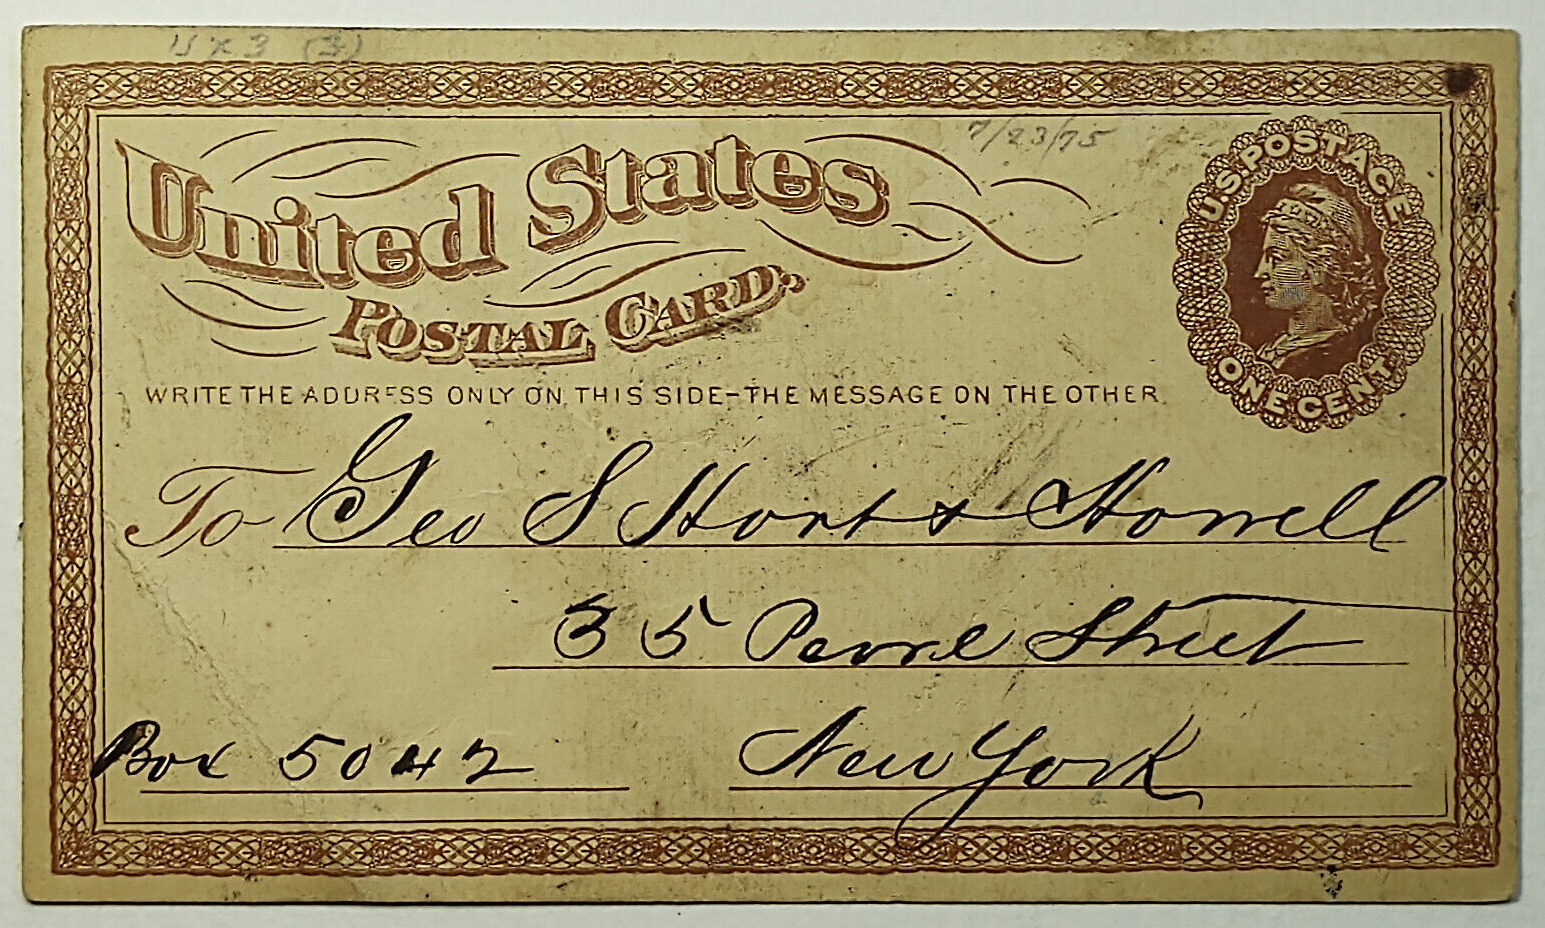 UX3 (3)
7/23/75
U.S. POSTAGE
ONE CENT
United States
POSTAL CARD.
WRITE THE ADDRESS ONLY ON THIS SIDE-THE MESSAGE ON THE OTHER
To Geo S Hart & Howell
35 Pearl Street
Box 5042 New York